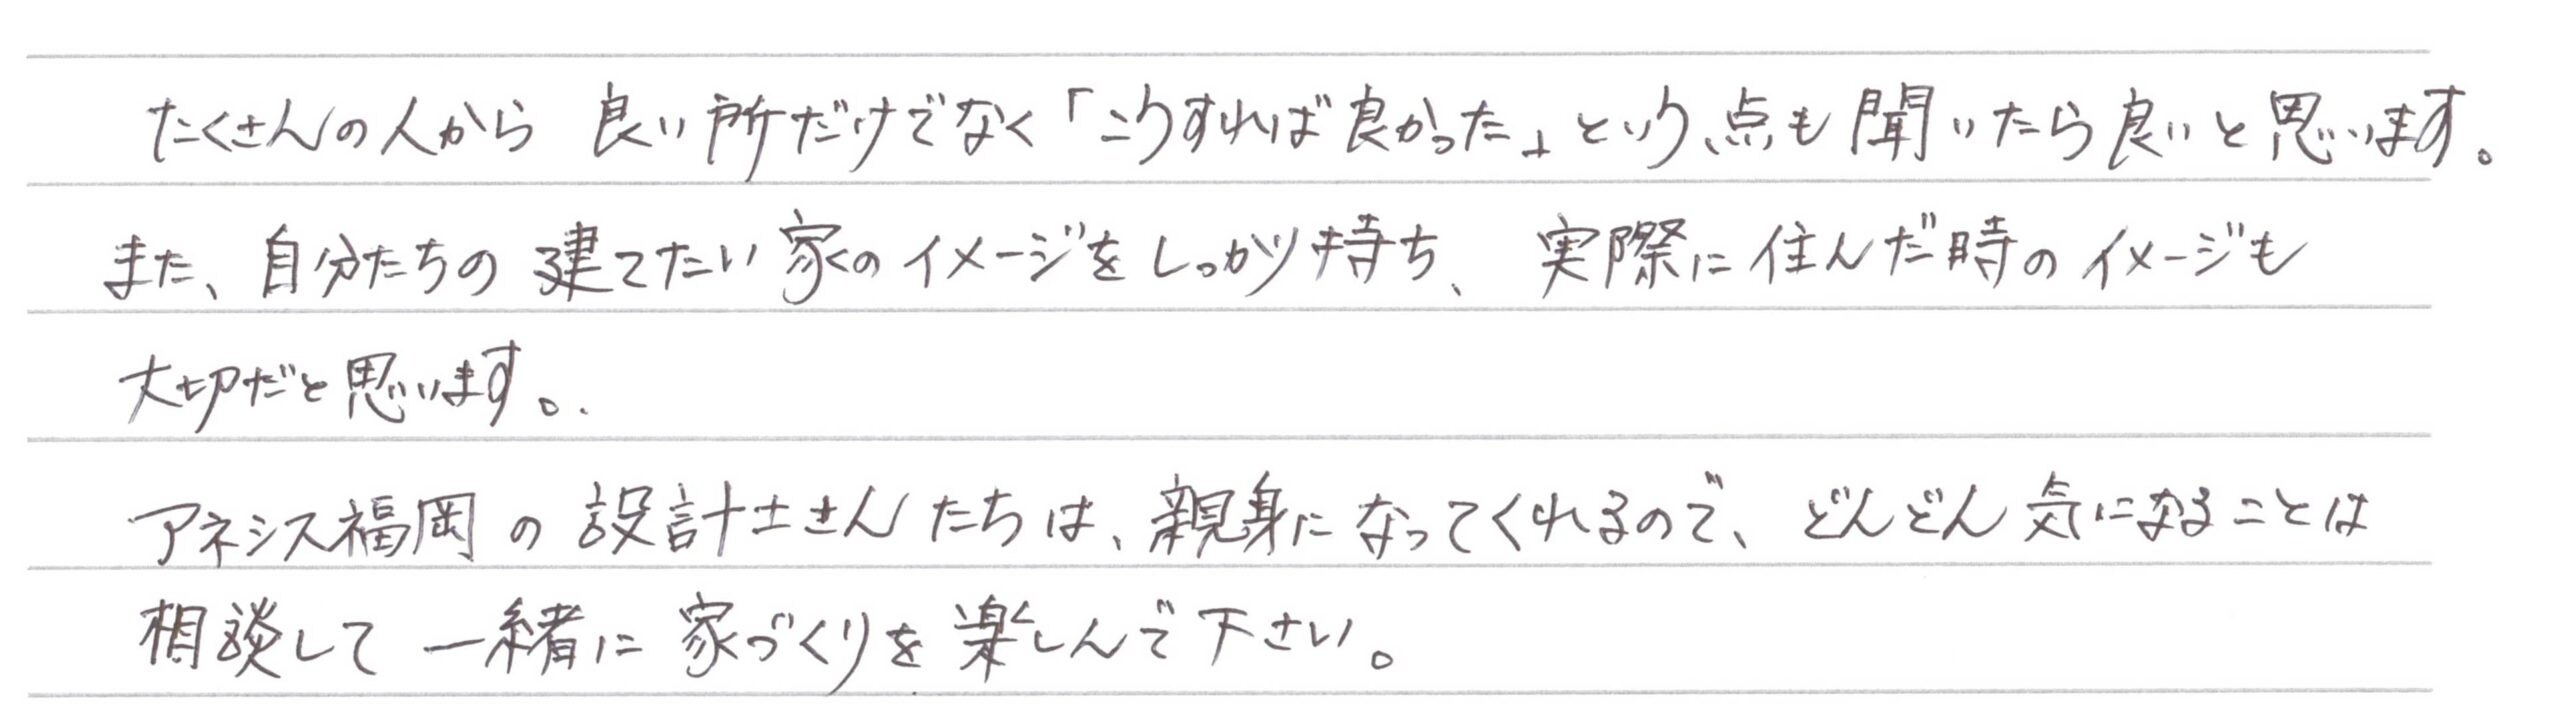 たくさんの人から 良い所だけでなく「こうすれば良かった」という点も聞いたら良いと思います。
また、自分たちの建てたい家のイメージをしっかり持ち、実際に住んだ時のイメージも
大切だと思います。
アネシス福岡の設計士さんたちは、親身になってくれるので、どんどん気になることは
相談して一緒に家づくりを楽しんで下さい。